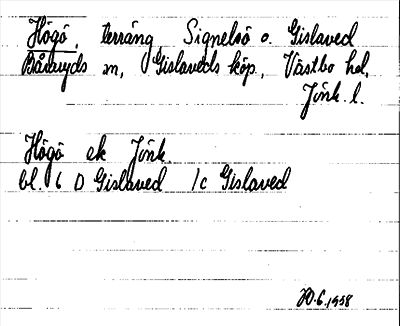 Högö, terräng, Signelsö o. Gislaved
Båraryds sn, Gislaveds köp., Västbo hd,
Jönk. l.
Högö ek Jönk.
bl. 6 D Gislaved 1c Gislaved
20.6.1958